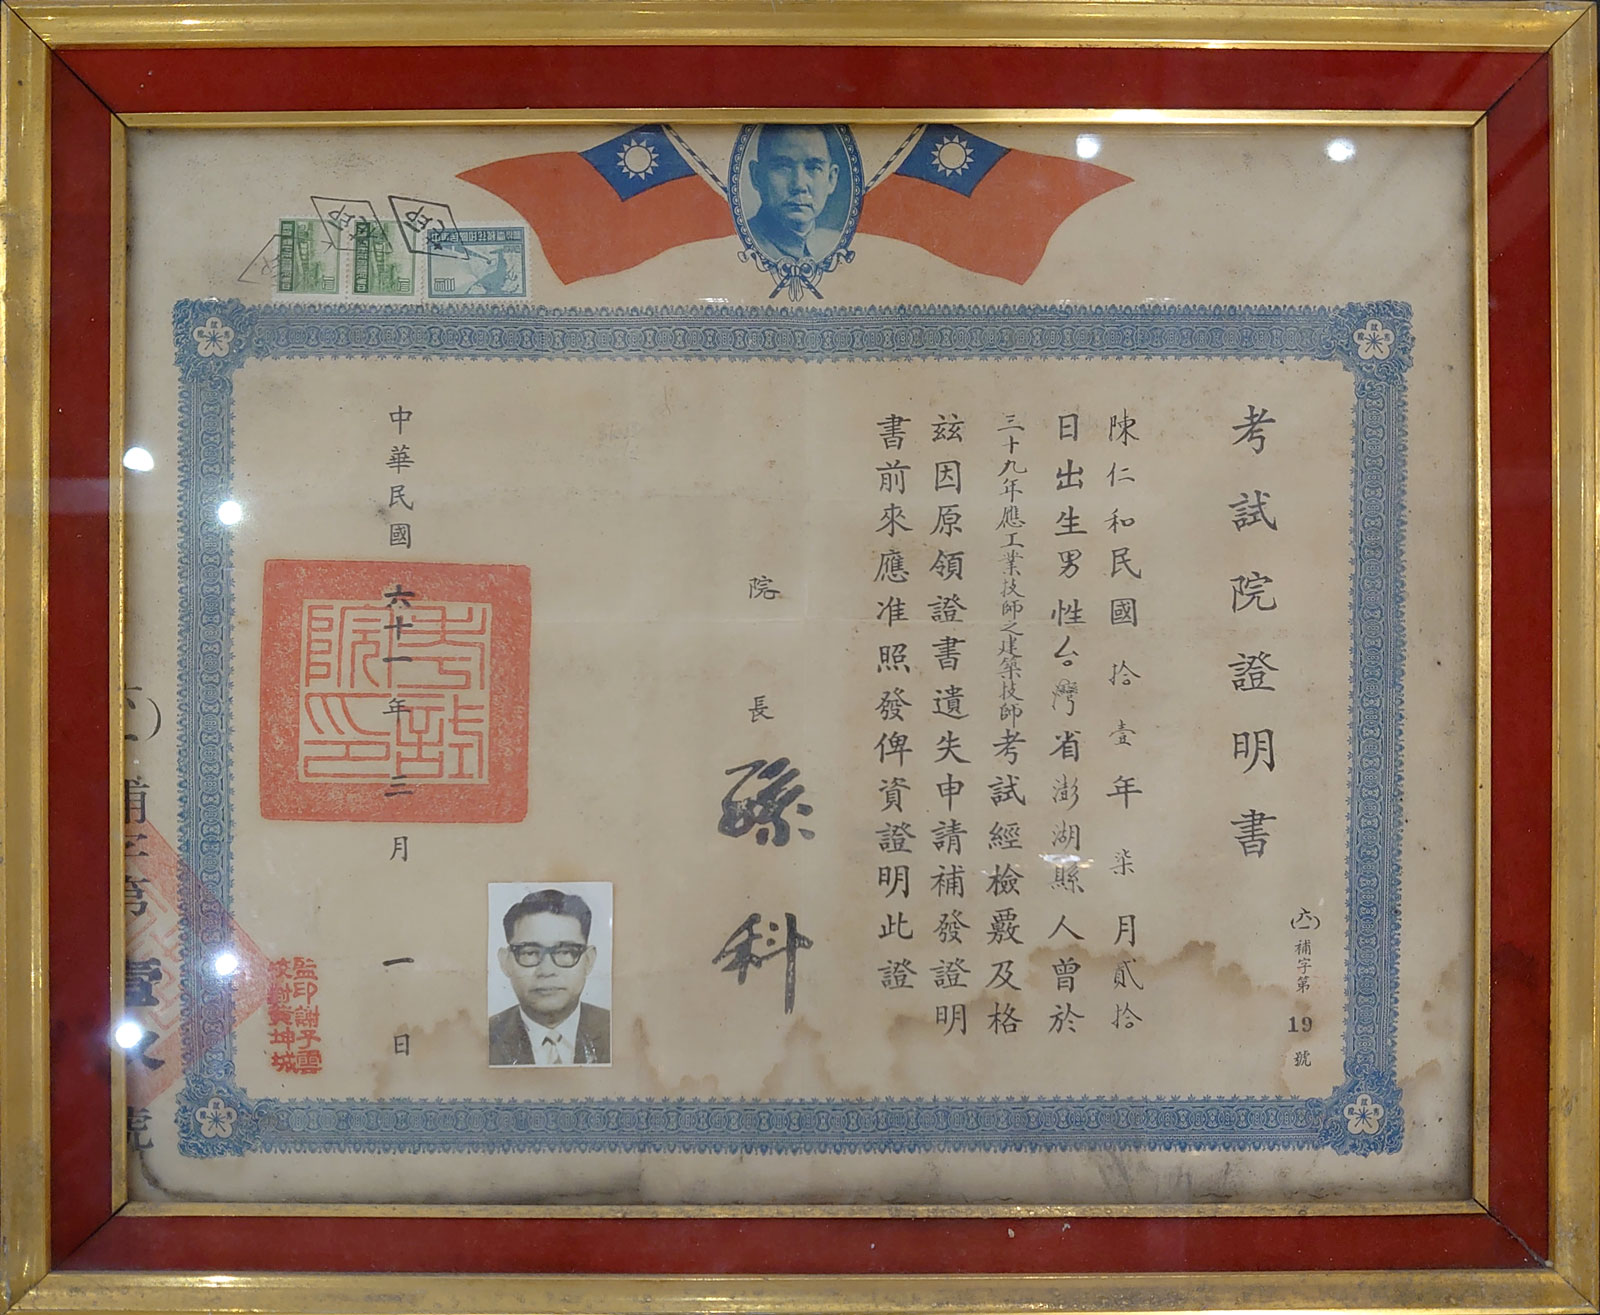 考試院證明書
(六一)補字第19號
陳仁和民國拾壹年柒月貳拾
日出生男性台灣省澎湖縣人曾於
三十九年應工業技師之建築技師考試經檢覈及格
茲因原領證書遺失申請補發證明
書前來應准照發俾資證明此證
院長孫科
中華民國六十一年二月一日
考試院印
監印謝子雲
校對黃坤城